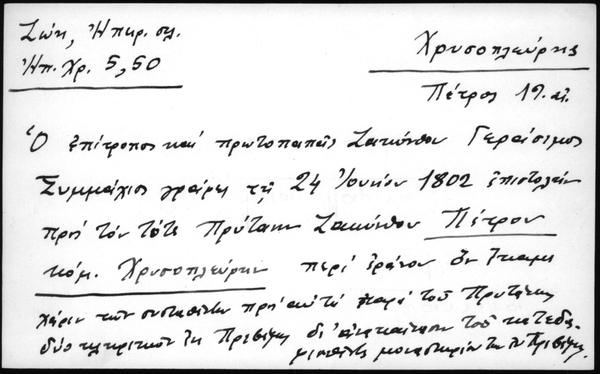 Ζώη, Ἠπειρ. σελ.
Ἠπ. Χρ. 5,50
Χρυσοπλεύρης
Πέτρος 19. αἰ.
Ὁ ἐπίτροπος καί πρωτοπαπᾶς Ζακύνθου Γεράσιμος
Συμμάχιος γράφει τῇ 24 Ἰουνίου 1802 ἐπιστολήν
πρός τόν τότε Πρύτανιν Ζακύνθου Πέτρον
κόμ. Χρυσοπλεύρην περί ἐράνου ὅν ἔκαμε
χάριν τῶν συσταθέντων πρός αὐτό παρά τοῦ Πρυτάνεως
δύο κληρικῶν ἐκ Πρεβέζης δι' ἀνακαίνισιν τοῦ κατεδα-
φισθέντος μοναστηρίου των ἐν Πρεβέζῃ.